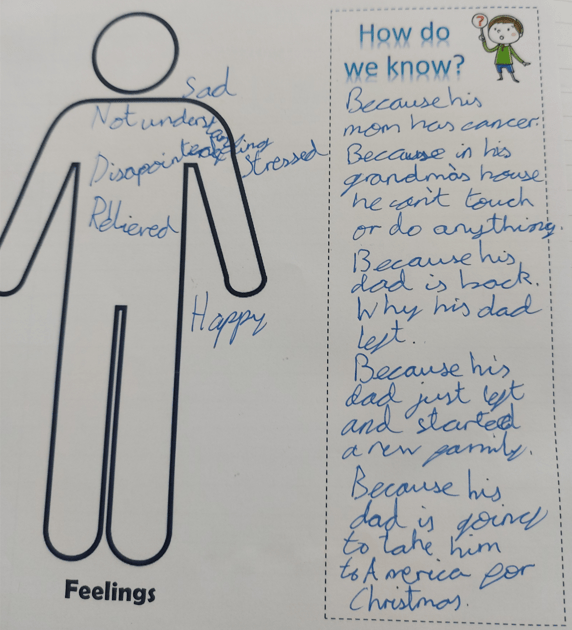 Sad
Not understanding
Disapointed
Stressed
Relieved
Happy
Feelings
How do
we know?
?
Because his
mom has cancer.
Because in his
grandma's house
he can't touch
or do anything.
Because his
dad is back.
Why his dad
left.
Because his
dad just left
and started
a new family.
Because his
dad is going
to take him
to America for
Christmas.